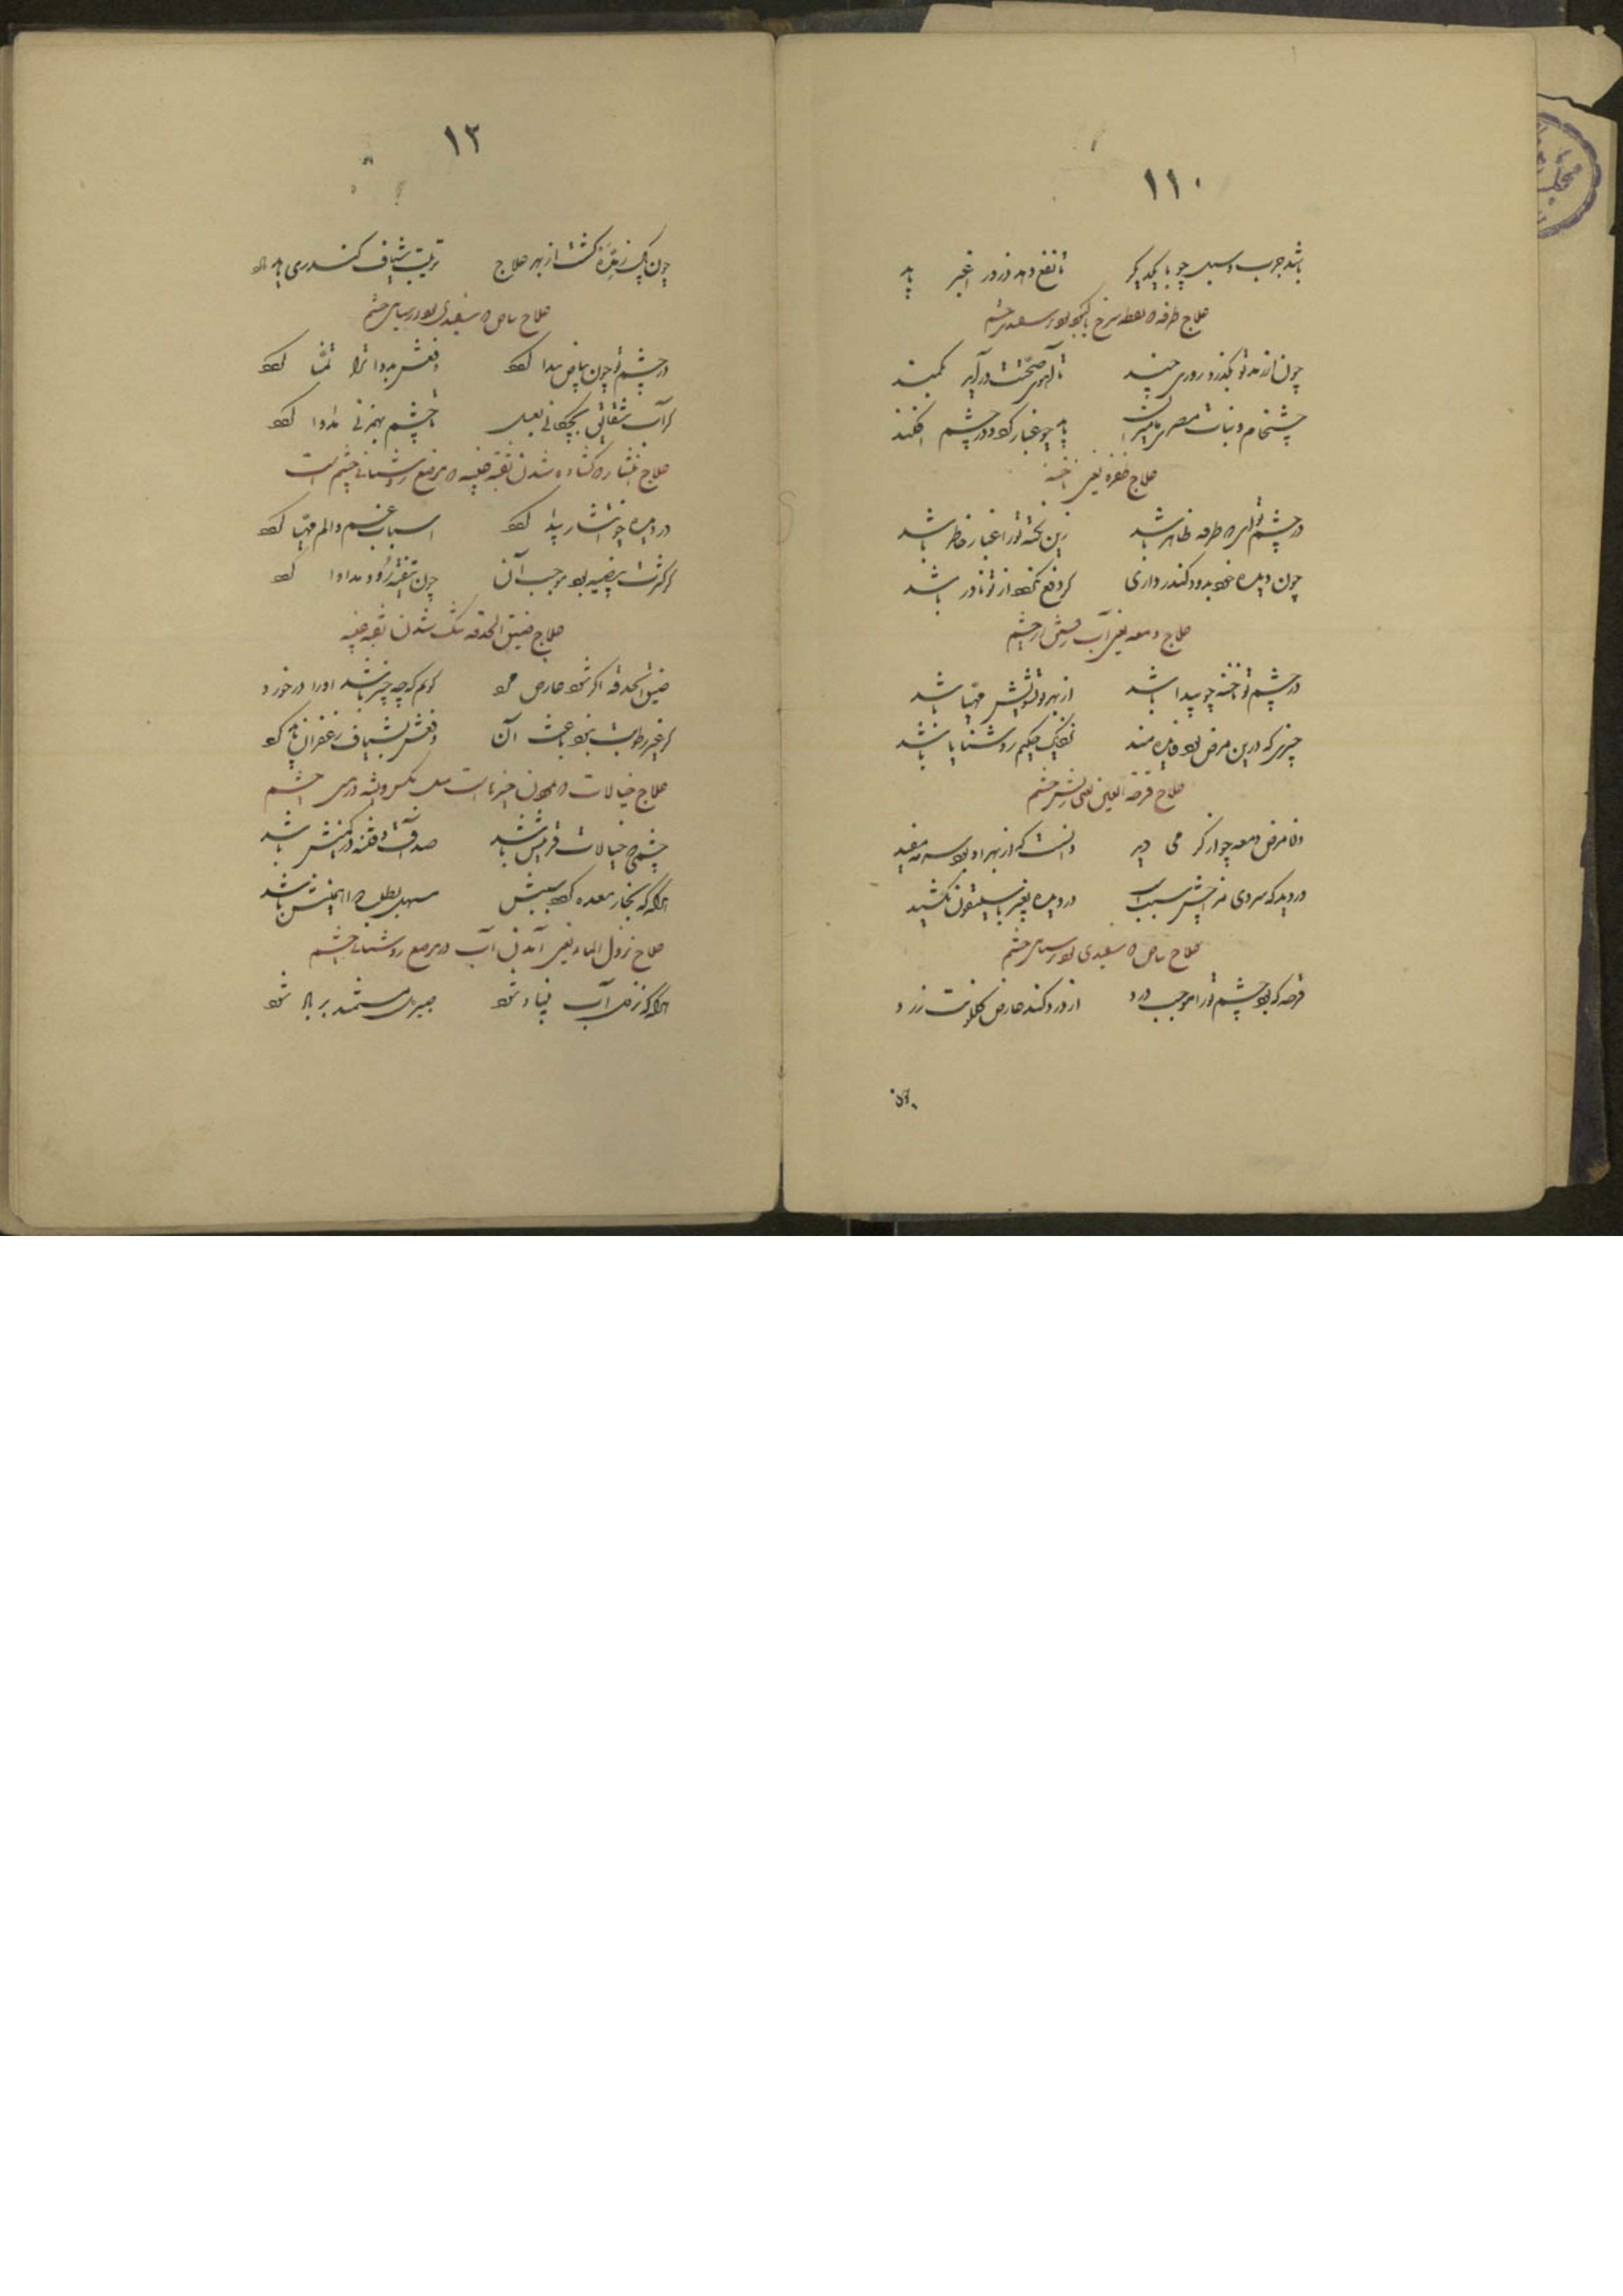 ۱۱۰
باشد جرب و سبل چو با یکدیگر تا نفع دهد ذرور اغبر باید
علاج طرفه نقطه سرخ یا کبود بود در سفیدی چشم
چون از رمد تو بگذرد روزی چند تا آهوی صحتت درآید بکمند
چشخام و نبات مصری مامیران باید چو غبار کرد و در چشم افکند
علاج ظفره یعنی ناخنه
در چشم تو طرفه ظاهر باشد زین نکته تو را غبار خاطر باشد
چون دیده خود بدود کندر داری گر دفع نگردد از تو نادر باشد
علاج دمعه یعنی آب رفتن از چشم
در چشم تو ناخنه چو پیدا باشد از بهر تو تشویش مهیا باشد
چیزی که درین مرض بود فایده مند نزدیک حکیم روشنایا باشد
علاج قرحه العین یعنی ریش چشم
مرض دمعه چو از گر می دید دانست که از بهر او بود سرمه مفید
در دید که سردی مزاجش سبب است در دیده بغیر باسلیقون نکشید
علاج بیاض سفیدی بود در سیاهی چشم
قرحه که بود چشم تو را موجب درد از درد کند عارض گلگونت زرد
۱۲
چون پاک ز مده گشت از بهر علاج ترتیب شیاف کندری باید
علاج بیاض سفیدی بود در سیاهی چشم
در چشم تو چون بیاض پیدا گردد دفعش بدوا ترا تمنا گردد
گر آب شقایق بچکانی بعسل چشم بهزنی مداوا گردد
علاج انتشار گشاده شدن ثقبه عنبیه موضع روشنائی چشم است
در دیده چو انتشار پیدا گردد اسباب غم و الم مهیا گردد
گر کثرت بیضیه بود موجب آن چون تنقیه رود مداوا گردد
علاج ضیق الحدقه تنگ شدن ثقبه عنبیه
ضیق الحدقه اگر شود عارض مرد گویم که چه چیز باشد او را در خورد
گر غیر رطوبت نبود باعث آن دفعش بشیاف زعفران باید کرد
علاج خیالات چون چیزهاست مثل مگس و پشه در پیش چشم
چشمی که خیالات قرینش باشد صد آفت و فتنه در کمینش باشد
آنگه که بخار معده گردد سببش مسهل بطلب
علاج نزول الماء یعنی آمدن آب در موضع روشنائی چشم
آنگه که نزول آب بنیاد شود